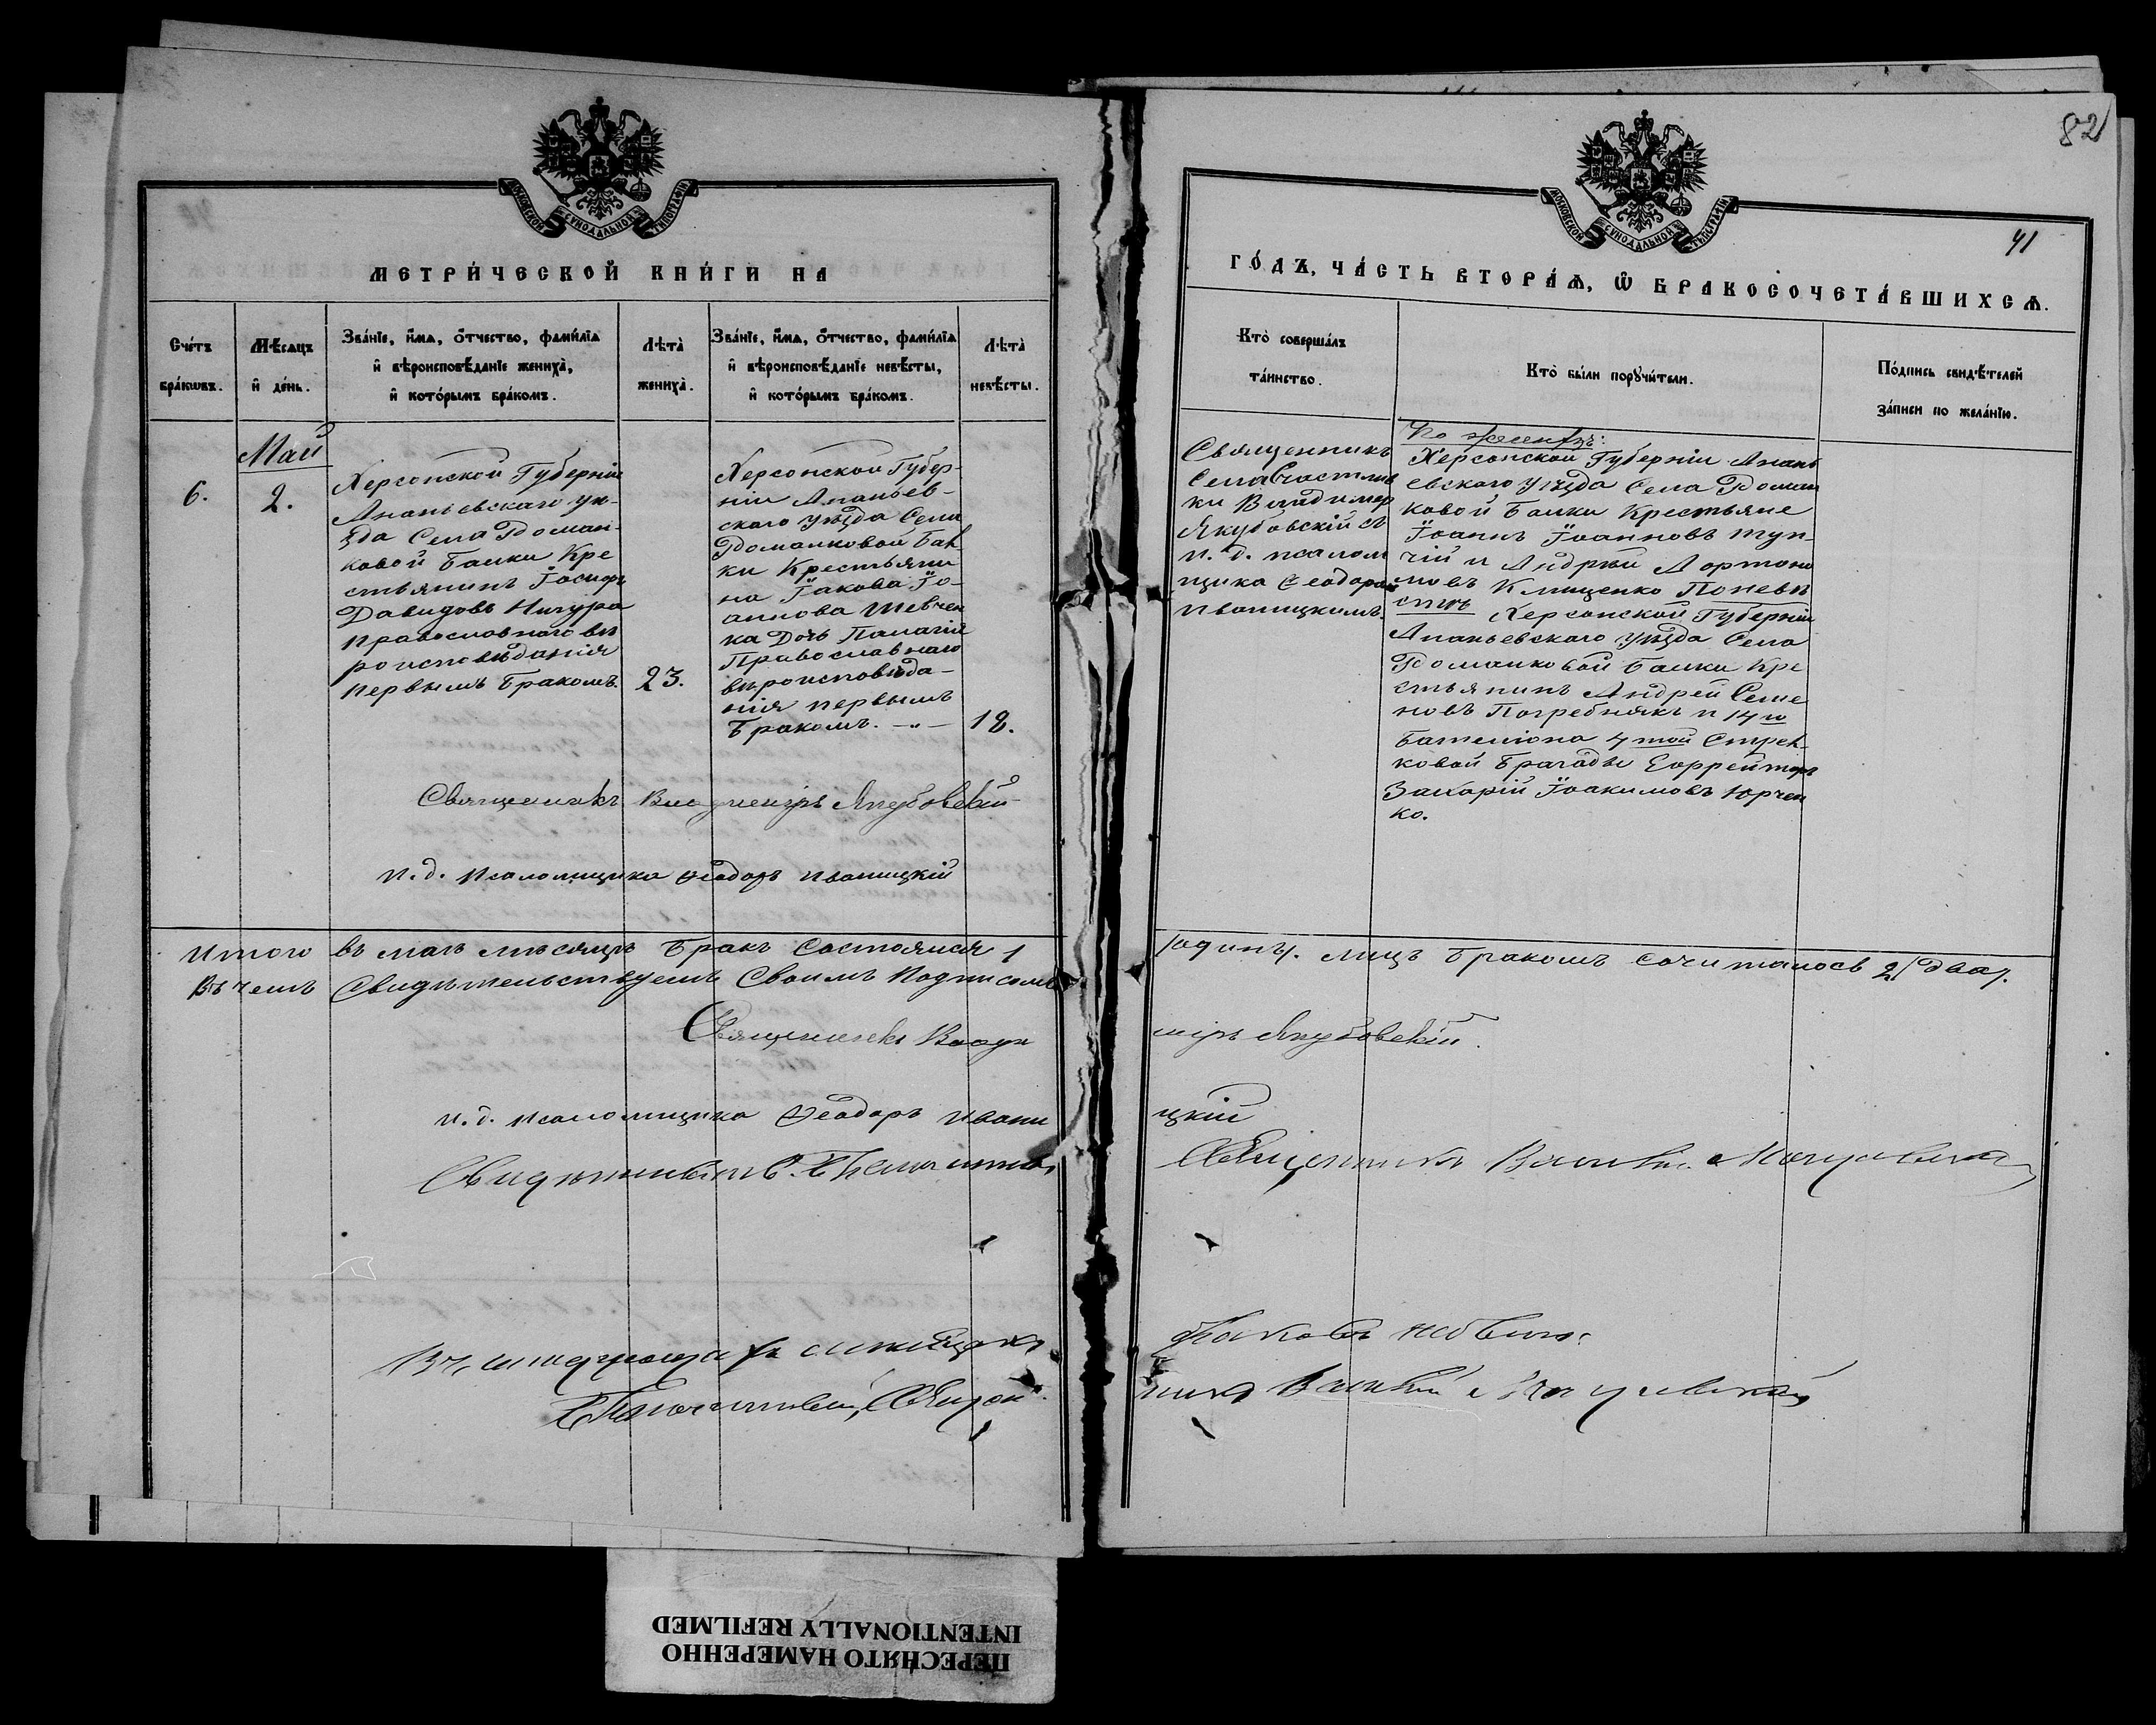 МОСКОВСКОЙ СУНОДАЛЬНОЙ ТИПОГРАФІИ
МЕТРИ́ЧЕСКОЙ КНИ́ГИ НА
Сче́тъ бра́кωвъ.
Мѣ́сяцъ и҆ де́нь.
Зва́нїе, и҆́мѧ, ѻ҆́тчество, фами́лїа
и҆ вѣроисповѣ́данїе жениха̀,
и҆ кото́рымъ бра́комъ.
Лѣта̀ жениха̀.
Зва́нїе, и҆́мѧ, ѻ҆́тчество, фами́лїа
и҆ вѣроисповѣ́данїе невѣ́сты,
и҆ кото́рымъ бра́комъ.
Лѣта̀ невѣ́сты.
Май
6.
2.
Херсонской Губерніи
Ананьевскаго уѣ-
зда Села Доман-
ковой Балки Кре
стьянинъ Іосифъ
Давидовъ Ничура
православнаго вѣ
роисповѣданія
первымъ бракомъ.
23.
Херсонской Губер-
ніи Ананьев-
скаго уѣзда Села
Доманковой Бал
ки Крестьяни
на Іакова Іо-
аннова Шевчен
ка дочь Палагія
Православнаго
вѣроисповѣда-
нія первымъ
бракомъ. —„—
18.
Священникъ Владимиръ Якубовскій
и. д. псаломщика Ѳеодоръ Иваницкій
Итого въ маѣ мѣсяцѣ бракъ состоялся 1
Въ чемъ Свидѣтельствуемъ своимъ подписомъ
Священникъ Влади
и. д. псаломщика Ѳеодоръ Ивани
82
МОСКОВСКОЙ СУНОДАЛЬНОЙ ТИПОГРАФІИ
41
ГО́ДЪ, ЧА́СТЬ ВТОРА́Ѧ, Ѡ҆ БРАКОСОЧЕТА́ВШИХСѦ.
Кто̀ соверша́лъ
та́инство.
Кто̀ бы́ли порꙋчи́тели.
По́дпись свидѣ́телей
за́писи по жела́нїю.
Священникъ
Села Счастлив
ки Владимер
Якубовскій съ
и. д. псалом
щика Ѳеодоромъ
Иваницкимъ.
По женихѣ:
Херсонской Губерніи Анань
евскаго уѣзда Села Доман
ковой Балки Крестьяне
Іоаннъ Іоанновъ
и Андрей
Клищенко По невѣ
стѣ Херсонской Губерніи
Ананьевскаго уѣзда Села
Доманковой Балки Кре
стьянинъ Андрей Семе
новъ Погребнякъ и 14го
Баталіона 4той Стрел-
ковой бригады Ефрейторъ
Захарій Іоакимовъ Юрчен
ко.
/одинъ/. лицъ бракомъ сочиталось 2/два/.
миръ Якубовскій.
цкій
ПЕРЕСНЯТО НАМЕРЕННО
INTENTIONALLY REFILMED